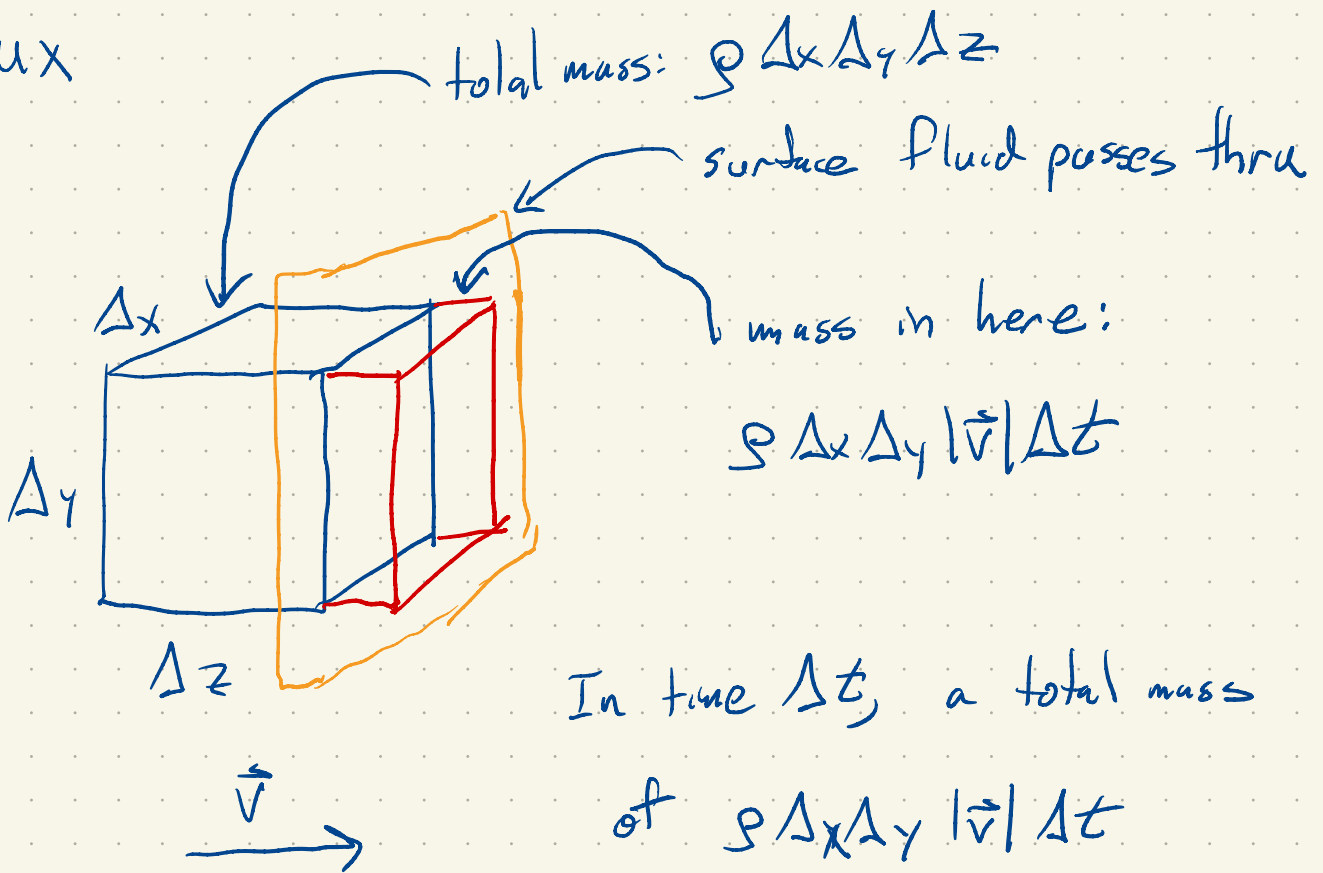 ux
total mass: ρ Δx Δy Δz
surface fluid passes thru
Δx
mass in here:
ρ Δx Δy |v⃗| Δt
Δy
Δz
In time Δt, a total mass
v⃗
of ρ Δx Δy |v⃗| Δt